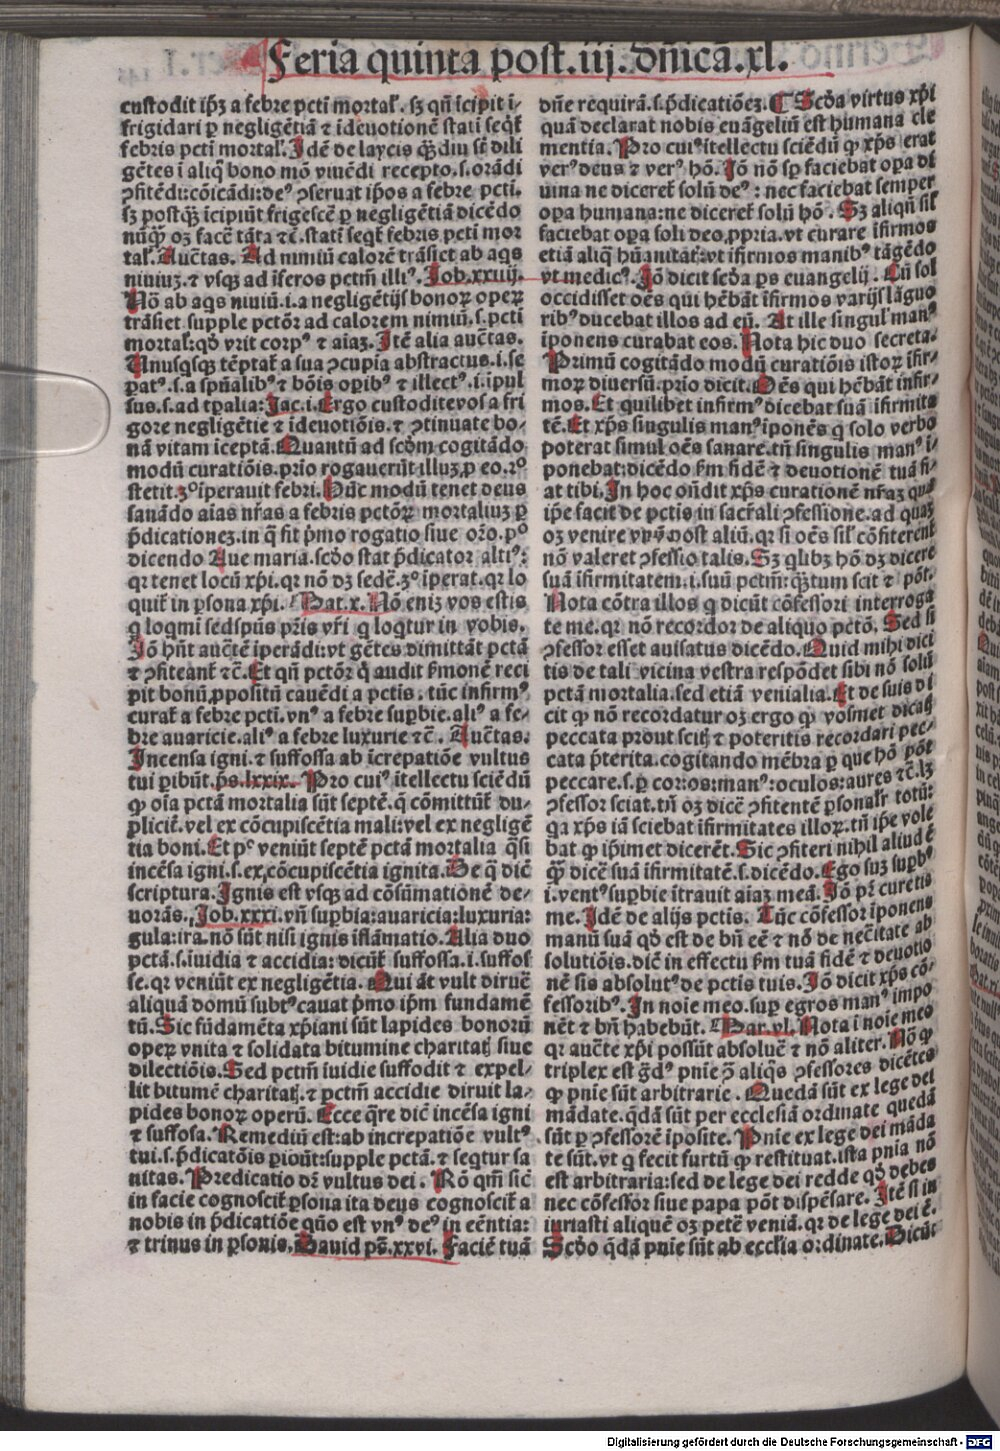 Feria quinta post .iij. dn̄icā .xl.
custodit ip̄ȝ a febre pcti mortal'. sȝ qn̄ īcipit ī-
frigidari ꝑ negligētiā ⁊ īdeuotionē stati seq̄t̄
febris pcti mortal'. Idē de laycis qȝ̄diu st̄ dili
gētes ī aliq̄ bono mō viuēdi recepto .s. orādi
ꝯfitēdi: cōicādi: deꝰ ꝯseruat ip̄os a febre pcti.
sȝ postqȝ̄ īcipiūt frigescē ꝑ negligētiā dicēdo
nūqȝ̄ oȝ facē tāta ⁊c̄. stati seq̄t̄ febris pcti mor
tal'. Auc̄tas. Ad nimiū calorē trāsiet ab aq̄s
niuiuȝ. ⁊ vsqȝ ad īferos pctm̄ illiꝰ. Job .xxiiij.
Rō ab aq̄s niuiū .i. a negligētijs bonoꝝ opeꝝ
trāsiet supple pctōꝝ ad calorem nimiū .s. pcti
mortal': qd̄ vrit corpꝰ ⁊ aīaȝ. Itē alia auc̄tas.
Vnusqȝsqȝ tēptat̄ a sua ꝯcupia abstractus .i. se
ꝑatꝰ .s. a spūalibꝰ ⁊ bōis oꝑibꝰ ⁊ illectꝰ .i. ipul
sus .s. ad tꝑalia: Jac. i. Ergo custoditeuos a fri
gore negligētie ⁊ īdeuotiōis. ⁊ ꝯtinuate bo-
nā vitam īceptā. Quantū ad scd̄m cogitādo
modū curatiōis. prīo rogauerūt illuȝ ꝓ eo. 2°
stetit. 3° īperauit febri. Hūc modū tenet deus
sanādo aīas nr̄as a febris pctōꝝ mortaliuȝ ꝑ
p̄dicationeȝ. in q̄ fit p̄mo rogatio siue or̄o. p°
dicendo Aue maria. scd̄o stat p̄dicator altiꝰ:
qꝛ tenet locū xp̄i. qꝛ nō dȝ sedē. 3° īperat. qꝛ lo
quit̄ in ꝑsona xp̄i. Mat. x. Nō eniȝ vos estis
q̄ loqmī sed spūs pr̄is vr̄i q̄ loqt̄ur in vobis.
Iō hn̄t auc̄tē īperādi: vt gētes dimittāt pctā
⁊ ꝯfiteant̄ ⁊c̄. Et qn̄ pctōꝝ q̄ audit ẜmonē reci
pit bonū ꝓpositū cauēdi a pctis. tūc infirmꝰ
curat̄ a febre pcti. vnꝰ a febre supbie. aliꝰ a fe-
bre auaricie. aliꝰ a febre luxurie ⁊c̄. Auc̄tas.
Incensa igni. ⁊ suffossa ab īcrepatiōe vultus
tui ꝑibūt. p̄s. lxxix. Pro cuiꝰ ītellectu sciēdū
ꝙ oīa pctā mortalia sūt septē. q̄ cōmittūt̄ du-
plicit̄. vel ex cōcupiscētia mali: vel ex negligē
tia boni. Et pᶜ veniūt septē pctā mortalia q̄si
incēsa igni .s. ex ꝯcupiscētia ignita. De q̄ dic̄
scriptura. Ignis est vsqȝ ad cōsūmationē de-
uorās. Job. xxxi. vn̄ supbia: auaricia: luxuria:
gula: ira. nō sūt nisi ignis īflāmatio. Alia duo
pctā .s. īuidia ⁊ accidia: dicūt̄ suffossa .i. suffos
se. qꝛ veniūt ex negligētia. Qui āt vult diruē
aliquā domū subtꝰ cauat p̄mo ip̄m fundamē
tū. Sic fūdamēta xp̄iani sūt lapides bonorū
opeꝝ vnita ⁊ solidata bitumine charitatꝭ siue
dilectiōis. Sed pctm̄ īuidie suffodit ⁊ expel-
lit bitumē charitatꝭ. ⁊ pctm̄ accidie diruit la-
pides bonoꝝ operū. Ecce q̄re dic̄ incēsa igni
⁊ suffosa. Remediū est: ab increpatiōe vultꝰ
tui .s. p̄dicatōis ꝑiōūt: supple pctā. ⁊ seqt̄ur sa
nitas. Predicatio dr̄ vultus dei. Rō qm̄ sic̄
in facie cognoscit̄ ꝑsona ita deus cognoscit̄ a
nobis in p̄dicatiōe qūo est vnꝰ deꝰ in eēntia:
⁊ trinus in ꝑsonis. Dauid pš. xxvi. Faciē tuā
dn̄e requirā .s. p̄dicatiōeȝ. ¶ Scd̄a virtus xp̄i
quā declarat nobis euāgeliū est humana cle
mentia. Pro cuiꝰ ītellectu sciēdū ꝙ xp̄s erat
verꝰ deus ⁊ verꝰ hō. Iō nō sp̄ faciebat oꝑa di
uina ne diceret̄ solū deꝰ: nec faciebat semper
oꝑa humana: ne diceret̄ solū hō. Sȝ aliqn̄ sil'
faciebat oꝑa soli deo ꝓpria. vt curare īfirmos
etiā aliq̄ hūanitat̄: vt īfirmos manibꝰ tāgēdo
vt medicꝰ. Iō dicit scd̄a ps euangelij. Cū sol
occidisset oēs qui hēbāt īfirmos varijs lāguo
ribꝰ ducebat illos ad eū. At ille singul' manꝰ
īponens curabat eos. Nota hic duo secreta.
Primū cogitādo modū curatiōis istoꝝ īfir-
moꝝ diuersū. prīo dicit. Oēs qui hēbāt infir-
mos. Et quilibet infirmꝰ dicebat suā īfirmita
tē. Et xp̄s singulis manꝰ īponēs q̄ solo verbo
poterat simul oēs sanare. tn̄ singulis manꝰ ī-
ponebat: dicēdo ẜm fidē ⁊ deuotionē tuā fi-
at tibi. In hoc on̄dit xp̄s curationē nr̄aȝ quā
ip̄e facit de pctis in sacr̄ali ꝯfessione. ad quaȝ
oȝ venire vnū post aliū. qꝛ si oēs sil' cōfiterent̄
nō valeret ꝯfessio talis. Sȝ q̄libȝ hō dȝ dicere
suā īfirmitatem .i. suū pctm̄: qȝ̄tum scit ⁊ pōt.
Nota cōtra illos q̄ dicūt cōfessori interroga
te me. qꝛ nō recordor de aliquo pctō. Sed si
ꝯfessor esset auisatus dicēdo. Quid mihi dici
tis de tali vicina vestra respōdet sibi nō solū
pctā mortalia. sed etiā venialia. Et de suis di
cit ꝙ nō recordatur oȝ ergo ꝙ vosmet dicatꝭ
peccata prout scitꝭ ⁊ poteritis recordari pec-
cata p̄terita. cogitando mēbra ꝑ que hō pōt
peccare .s. ꝑ cor: os: manꝰ: oculos: aures ⁊c̄. lȝ
ꝯfessor sciat. tn̄ oȝ dicē ꝯfitentē ꝑsonalr̄ totū:
qꝛ xp̄s iā sciebat īfirmitates illoꝝ. tn̄ ip̄e vole
bat ꝙ ip̄imet dicerēt. Sic ꝯfiteri nihil aliud ē
qȝ̄ dicē suā īfirmitatē .s. dicēdo. Ego suȝ supbꝰ
.i. ventꝰ supbie ītrauit aīaȝ meā. Iō pr̄ curetis
me. Idē de alijs pctis. Tūc cōfessor īponens
manū suā qd̄ est de bn̄ eē ⁊ nō de nec̄itate ab
solutiōis. dic̄ in effectu ẜm tuā fidē ⁊ deuotio
nē sis absolutꝰ de pctis tuis. Iō dicit xp̄s cō-
fessoribꝰ. In noīe meo. suꝑ egros manꝰ impo
nēt ⁊ bn̄ habebūt. Mar. vl. Nota ī noīe meo
qꝛ auc̄te xp̄i possūt absoluē ⁊ nō aliter. Nō ꝙ
triplex est ḡdꝰ pnīe ꝯ̄ aliq̄s ꝯfessores dicētes
ꝙ pnīe sūt arbitrarie. Quedā sūt ex lege dei
mādate. q̄dā sūt per ecclesiā ordinate quedā
sūt ꝑ ꝯfessorē īposite. Pnīe ex lege dei māda
te sūt. vt q̄ fecit furtū ꝙ restituat. ista pnīa nō
est arbitraria: sed de lege dei redde qd̄ debes
nec cōfessor siue papa pōt dispēsare. Itē si in
iuriasti aliquē oȝ petē veniā. qꝛ de lege dei ē.
Scd̄o q̄dā pnīe sūt ab eccl'ia ordinate. Dicūt
Digitalisierung gefördert durch die Deutsche Forschungsgemeinschaft - DFG